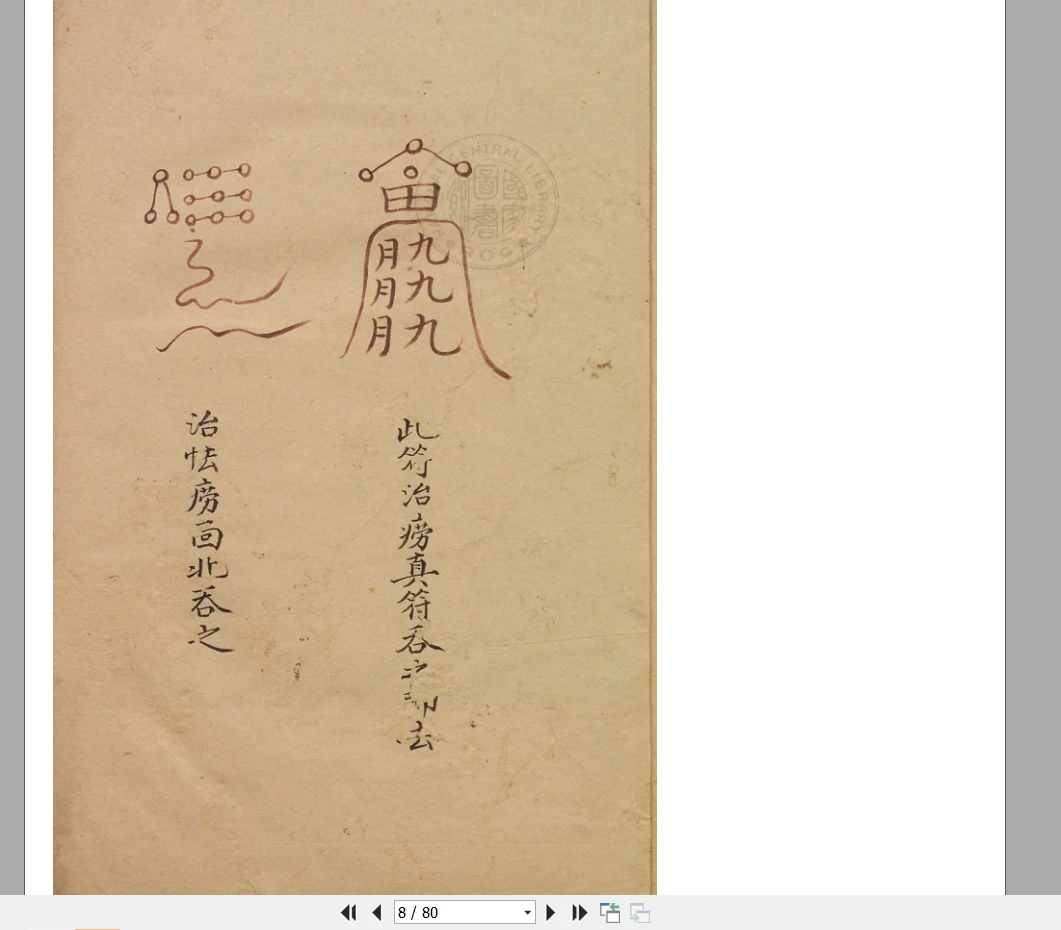 田
九九九
月月月
此符治痨真符吞之即去
治怯痨面北吞之
CENTRAL LIBRARY
8 / 80